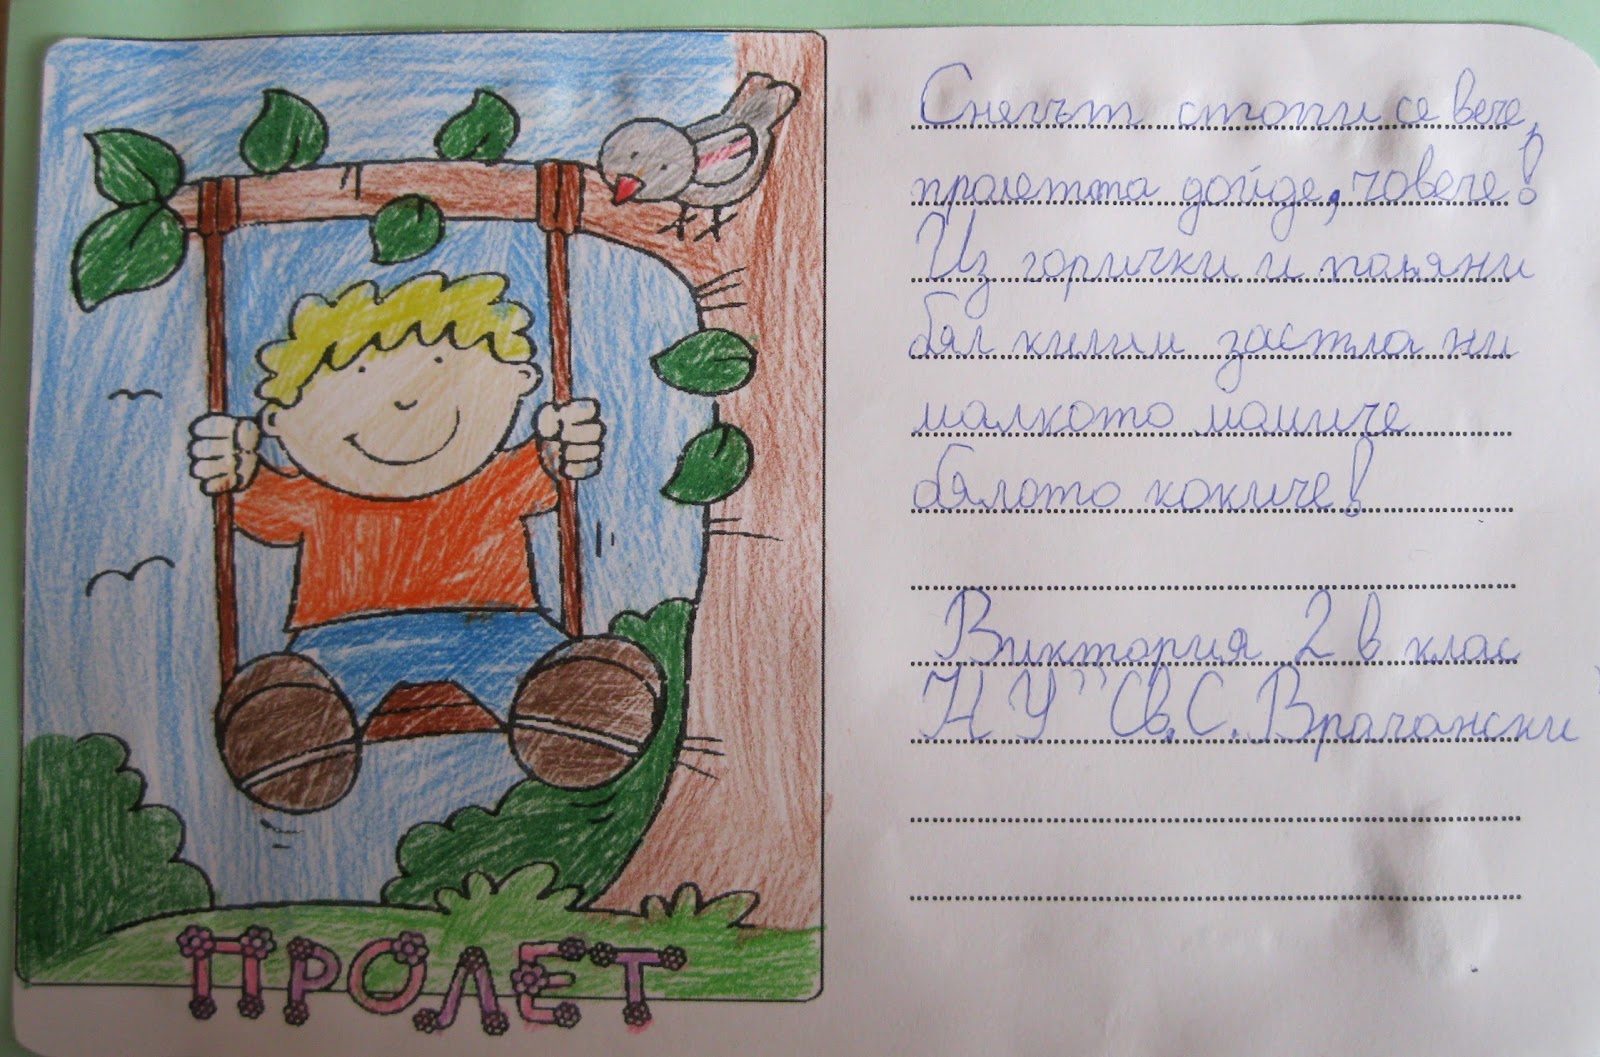 Снегът стопи се вече,
пролетта дойде, човече!
Из горички и поляни
бял килим застла ни
малкото момиче
бялото кокиче!
Виктория 2 в клас
НУ "Св. С. Врачански
ПРОЛЕТ